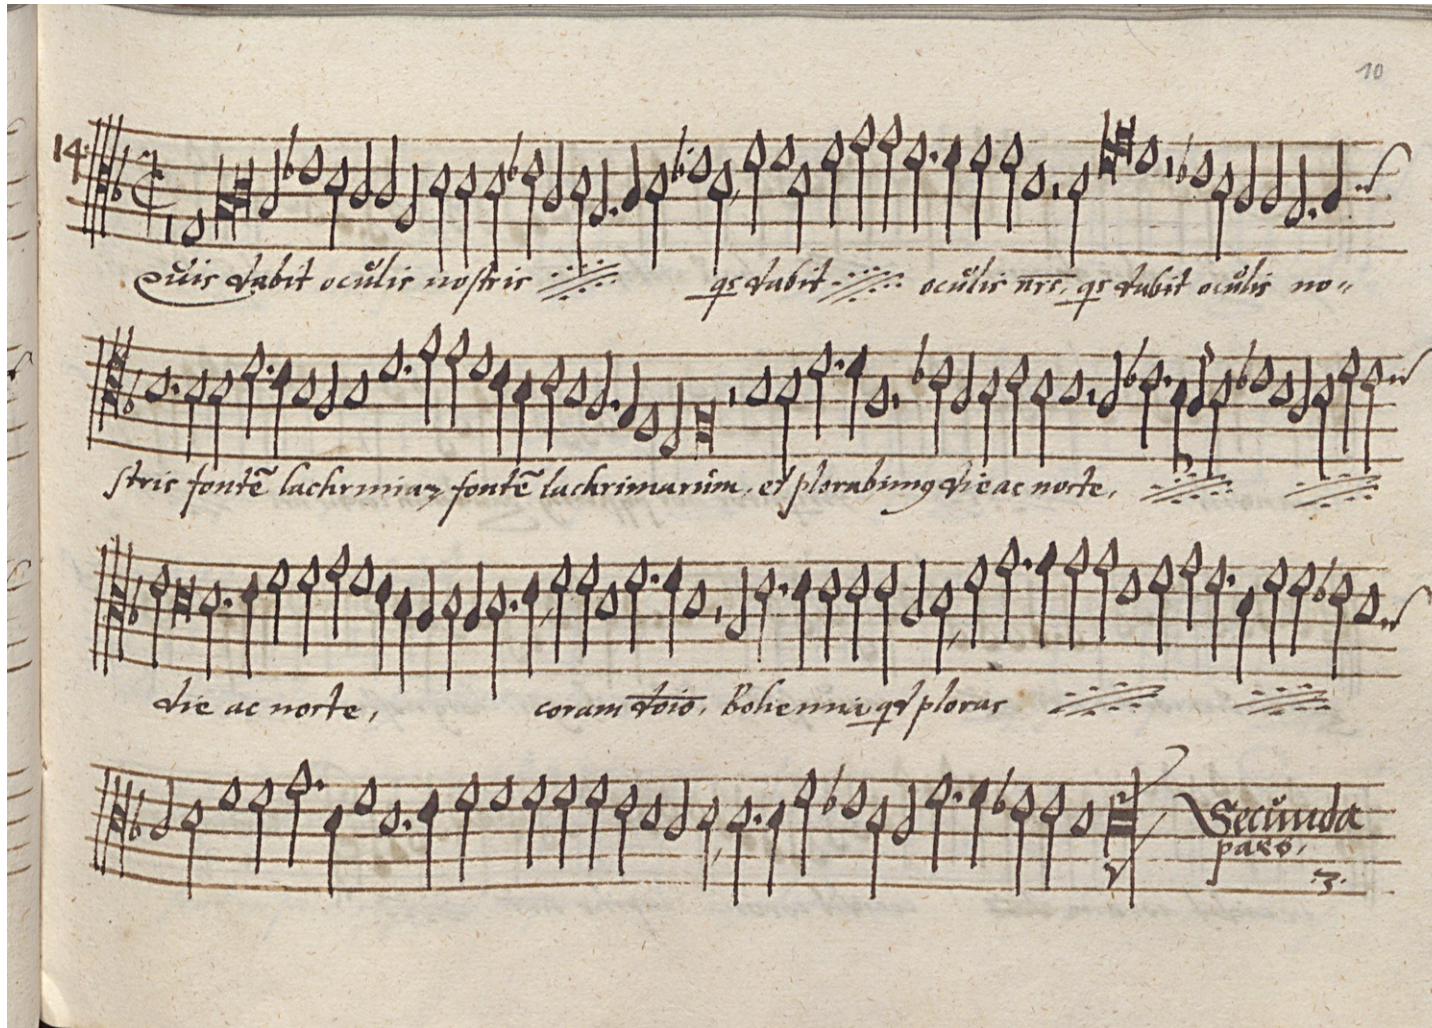 10
14.
Quis dabit oculis nostris qs dabit oculis nrs, qs dabit oculis no=
stris fontẽ lachrimaꝝ fontẽ lachrimarum, et plorabimꝰ die ac nocte,
die ac nocte, coram dnō, Bohemia qd ploras
Secunda
pars,